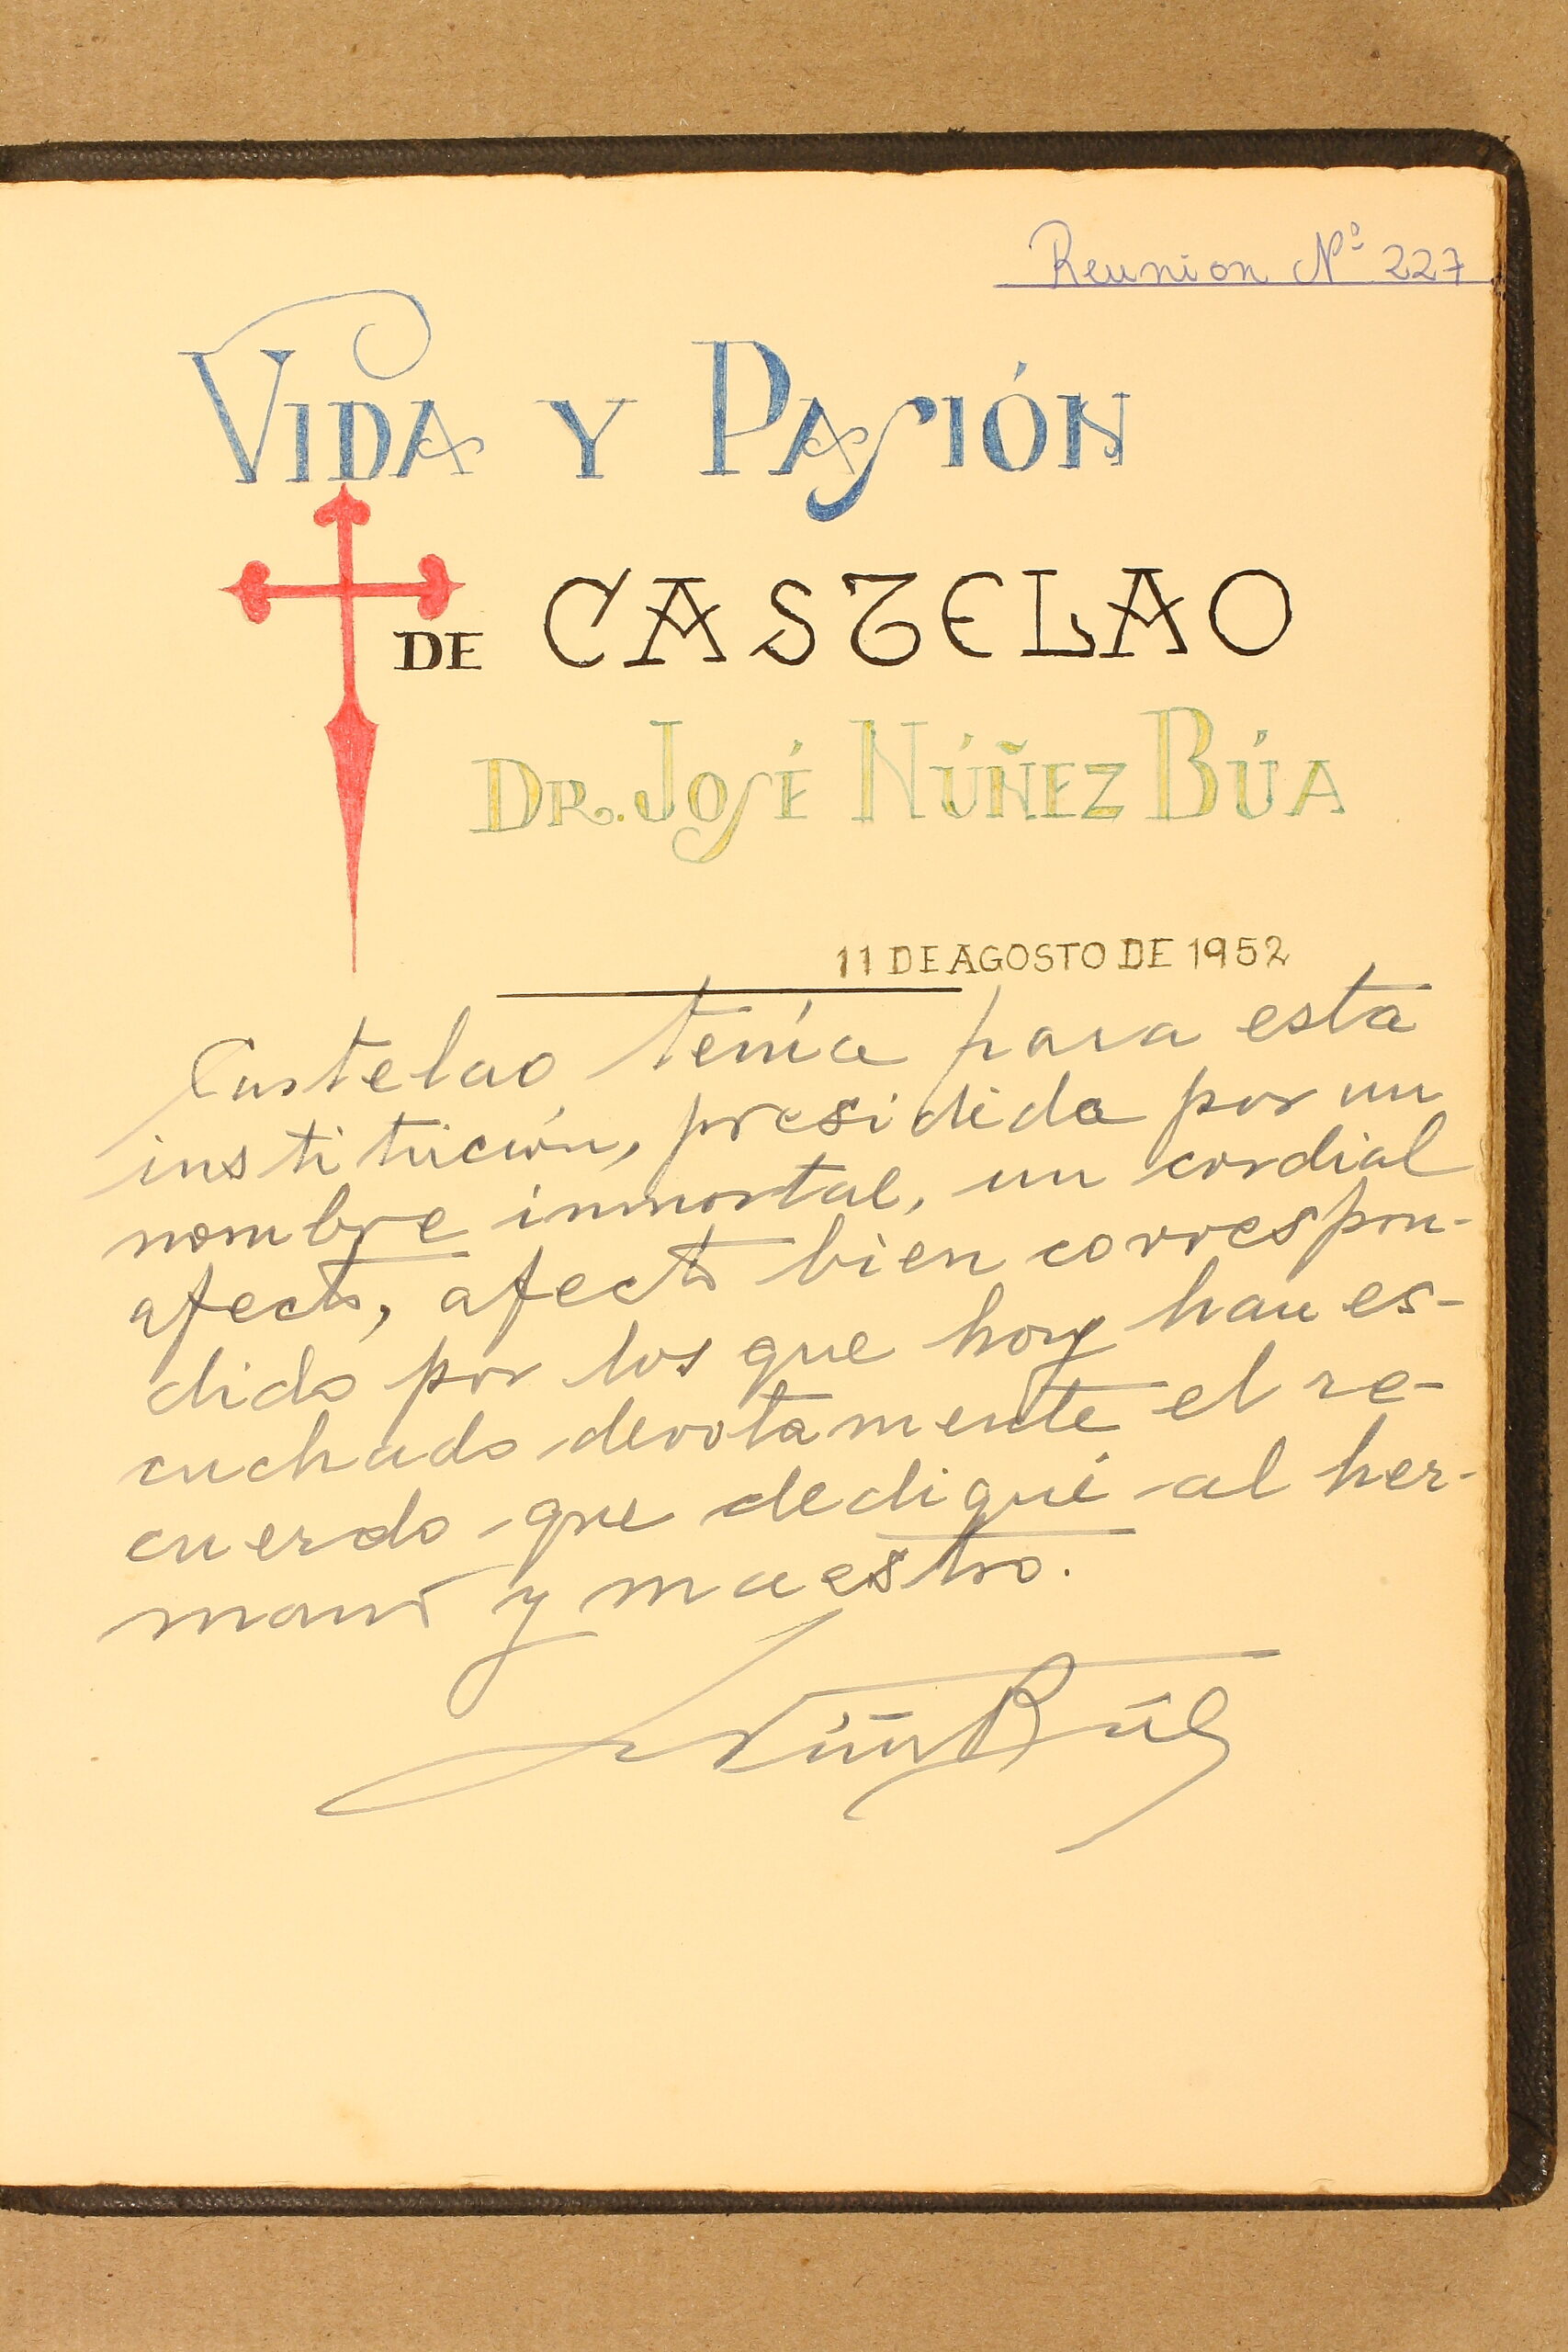 Reunion Nº 227
VIDA Y PASIÓN
DE CASTELAO
DR. JOSÉ NÚÑEZ BÚA
11 DE AGOSTO DE 1952
Castelao tenía para esta
institución, presidida por un
nombre inmortal, un cordial
afecto, afecto bien correspon-
dido por los que hoy han es-
cuchado devotamente el re-
cuerdo que dediqué al her-
mano y maestro.
Núñez Búa